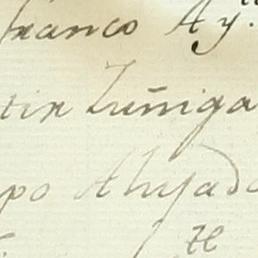 franco Ay.
tin Zuñiga
po Ahijado